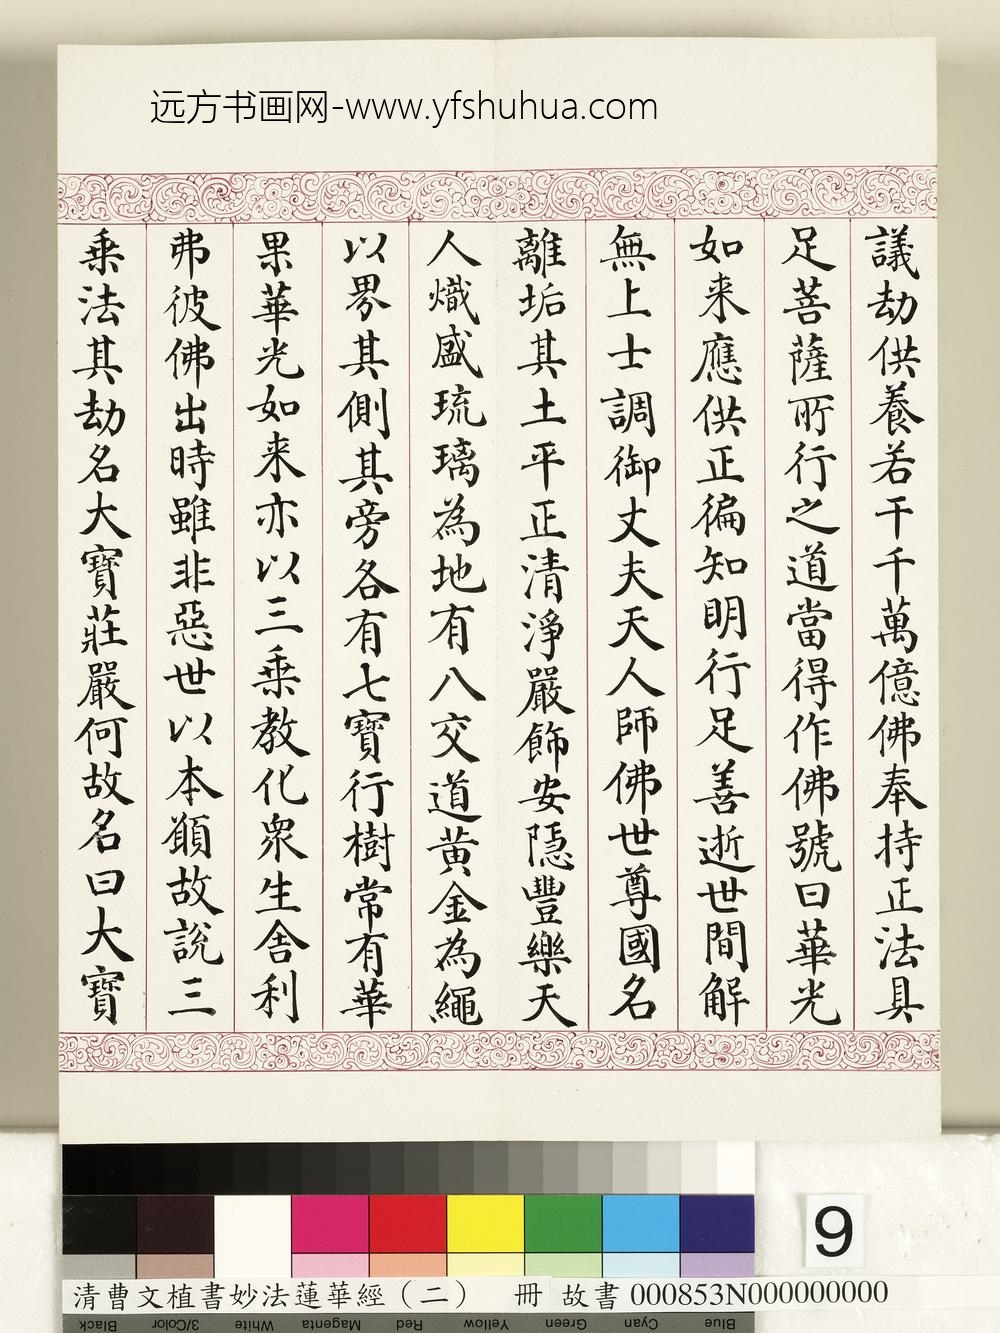 远方书画网-www.yfshuhua.com
議劫供養若干千萬億佛奉持正法具
足菩薩所行之道當得作佛號曰華光
如来應供正徧知明行足善逝世間解
無上士調御丈夫天人師佛世尊國名
離垢其土平正清淨嚴飾安隱豐樂天
人熾盛琉璃為地有八交道黄金為繩
以界其側其旁各有七寶行樹常有華
果華光如来亦以三乗教化衆生舍利
弗彼佛出時雖非惡世以本願故說三
乗法其劫名大寶莊嚴何故名曰大寶
9
清曹文植書妙法蓮華經（二） 冊 故書 000853N000000000
Black 3/Color White Magenta Red Yellow Green Cyan Blue